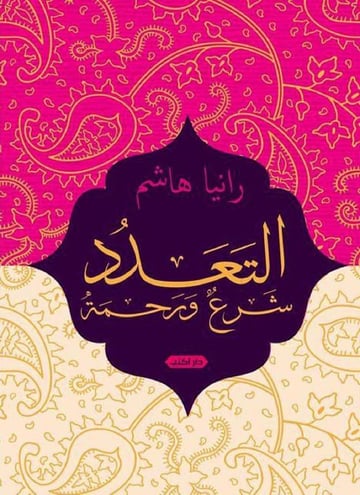 رانيا هاشم
التَعَدُد
شَرعٌ ورَحمَة
دار اكتب